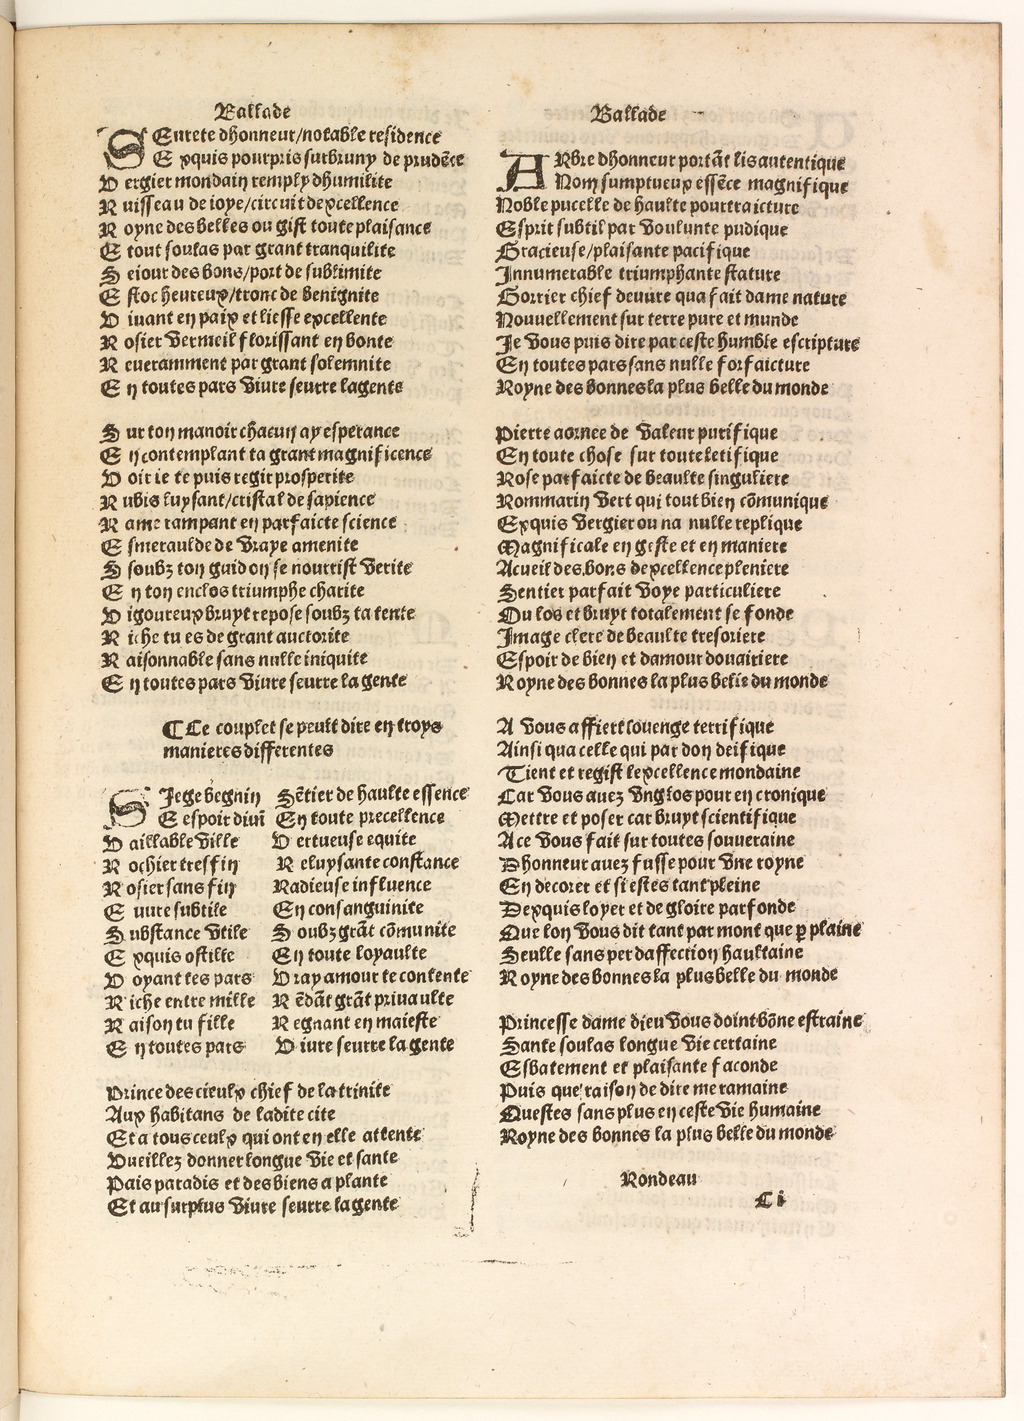 Ballade
SEurete dhonneur/notable residence
E xquis pourpris surbruny de prudēce
V ergier mondain remply dhumilite
R uisseau de ioye/circuit dexcellence
R oyne des belles ou gist toute plaisance
E tout soulas par grant tranquilite
S eiour des bons/port de sublimite
E stoc heureux/tronc de benignite
V iuant en paix et liesse excellente
R osier vermeil florissant en bonte
R eueramment par grant solemnite
E n toutes pars viure seurre lagente
S ur ton manoir chacun ay esperance
E n contemplant ta grant magnificence
V oir ie te puis regir prosperite
R ubis luysant/cristal de sapience
R ame rampant en parfaicte science
E smeraulde de vraye amenite
S soubz ton guidon se nourrist verite
E n ton enclos triumphe charite
V igoureux bruyt repose soubz ta tente
R iche tu es de grant auctorite
R aisonnable sans nulle iniquite
E n toutes pars viure seurre la gente
¶ Le couplet se peult dire en troys
manieres differentes
SIege begnin Sētier de haulte essence
E espoir diuī En toute precellence
V aillable ville V ertueuse equite
R ochier tresfin R eluysante constance
R osier sans fin Radieuse influence
E uure subtile En consanguinite
S ubstance vtile S oubz grāt cōmunite
E xquis ostille En toute loyaulte
V oyant tes pars V ray amour te contente
R iche entre mille R ēdāt grāt priuaulte
R aison tu fille R egnant en maieste
E n toutes pars V iure seurre la gente
Prince des cieulx chief de la trinite
Aux habitans de ladite cite
Et a tous ceulx qui ont en elle attente
Vueillez donner longue vie et sante
Pais paradis et des biens a plante
Et au surplus viure seurre la gente
Ballade
ARbre dhonneur portāt lis autentique
Nom sumptueux essēce magnifique
Noble pucelle de haulte pourtraicture
Esprit subtil par voulunte pudique
Gracieuse/plaisante pacifique
Innumerable triumphante stature
Gorrier chief deuure qua fait dame nature
Nouuellement sur terre pure et munde
Je vous puis dire par ceste humble escripture
En toutes pars sans nulle forfaicture
Royne des bonnes la plus belle du monde
Pierre aornee de valeur purifique
En toute chose sur toute letifique
Rose parfaicte de beaulte singuliere
Rommarin vert qui tout bien cōmunique
Exquis vergier ou na nulle replique
Magnificale en geste et en maniere
Acueil des bons dexcellence pleniere
Sentier parfait voye particuliere
Ou los et bruyt totalement se fonde
Image clere de beaulte tresoriere
Espoir de bien et damour douairiere
Royne des bonnes la plus belle du monde
A vous affiert louenge terrifique
Ainsi qua celle qui par don deifique
Tient et regist lexcellence mondaine
Car vous auez vng los pour en cronique
Mettre et poser car bruyt scientifique
A ce vous fait sur toutes souueraine
Dhonneur auez fusse pour vne royne
En decorer et si estes tant pleine
Dexquis loyer et de gloire parfonde
Que lon vous dit tant par mont que ꝑ plaine
Seulle sans per daffection haultaine
Royne des bonnes la plus belle du monde
Princesse dame dieu vous doint bōne estraine
Sante soulas longue vie certaine
Esbatement et plaisante faconde
Puis que raison de dire me ramaine
Questes sans plus en ceste vie humaine
Royne des bonnes la plus belle du monde
Rondeau
C i